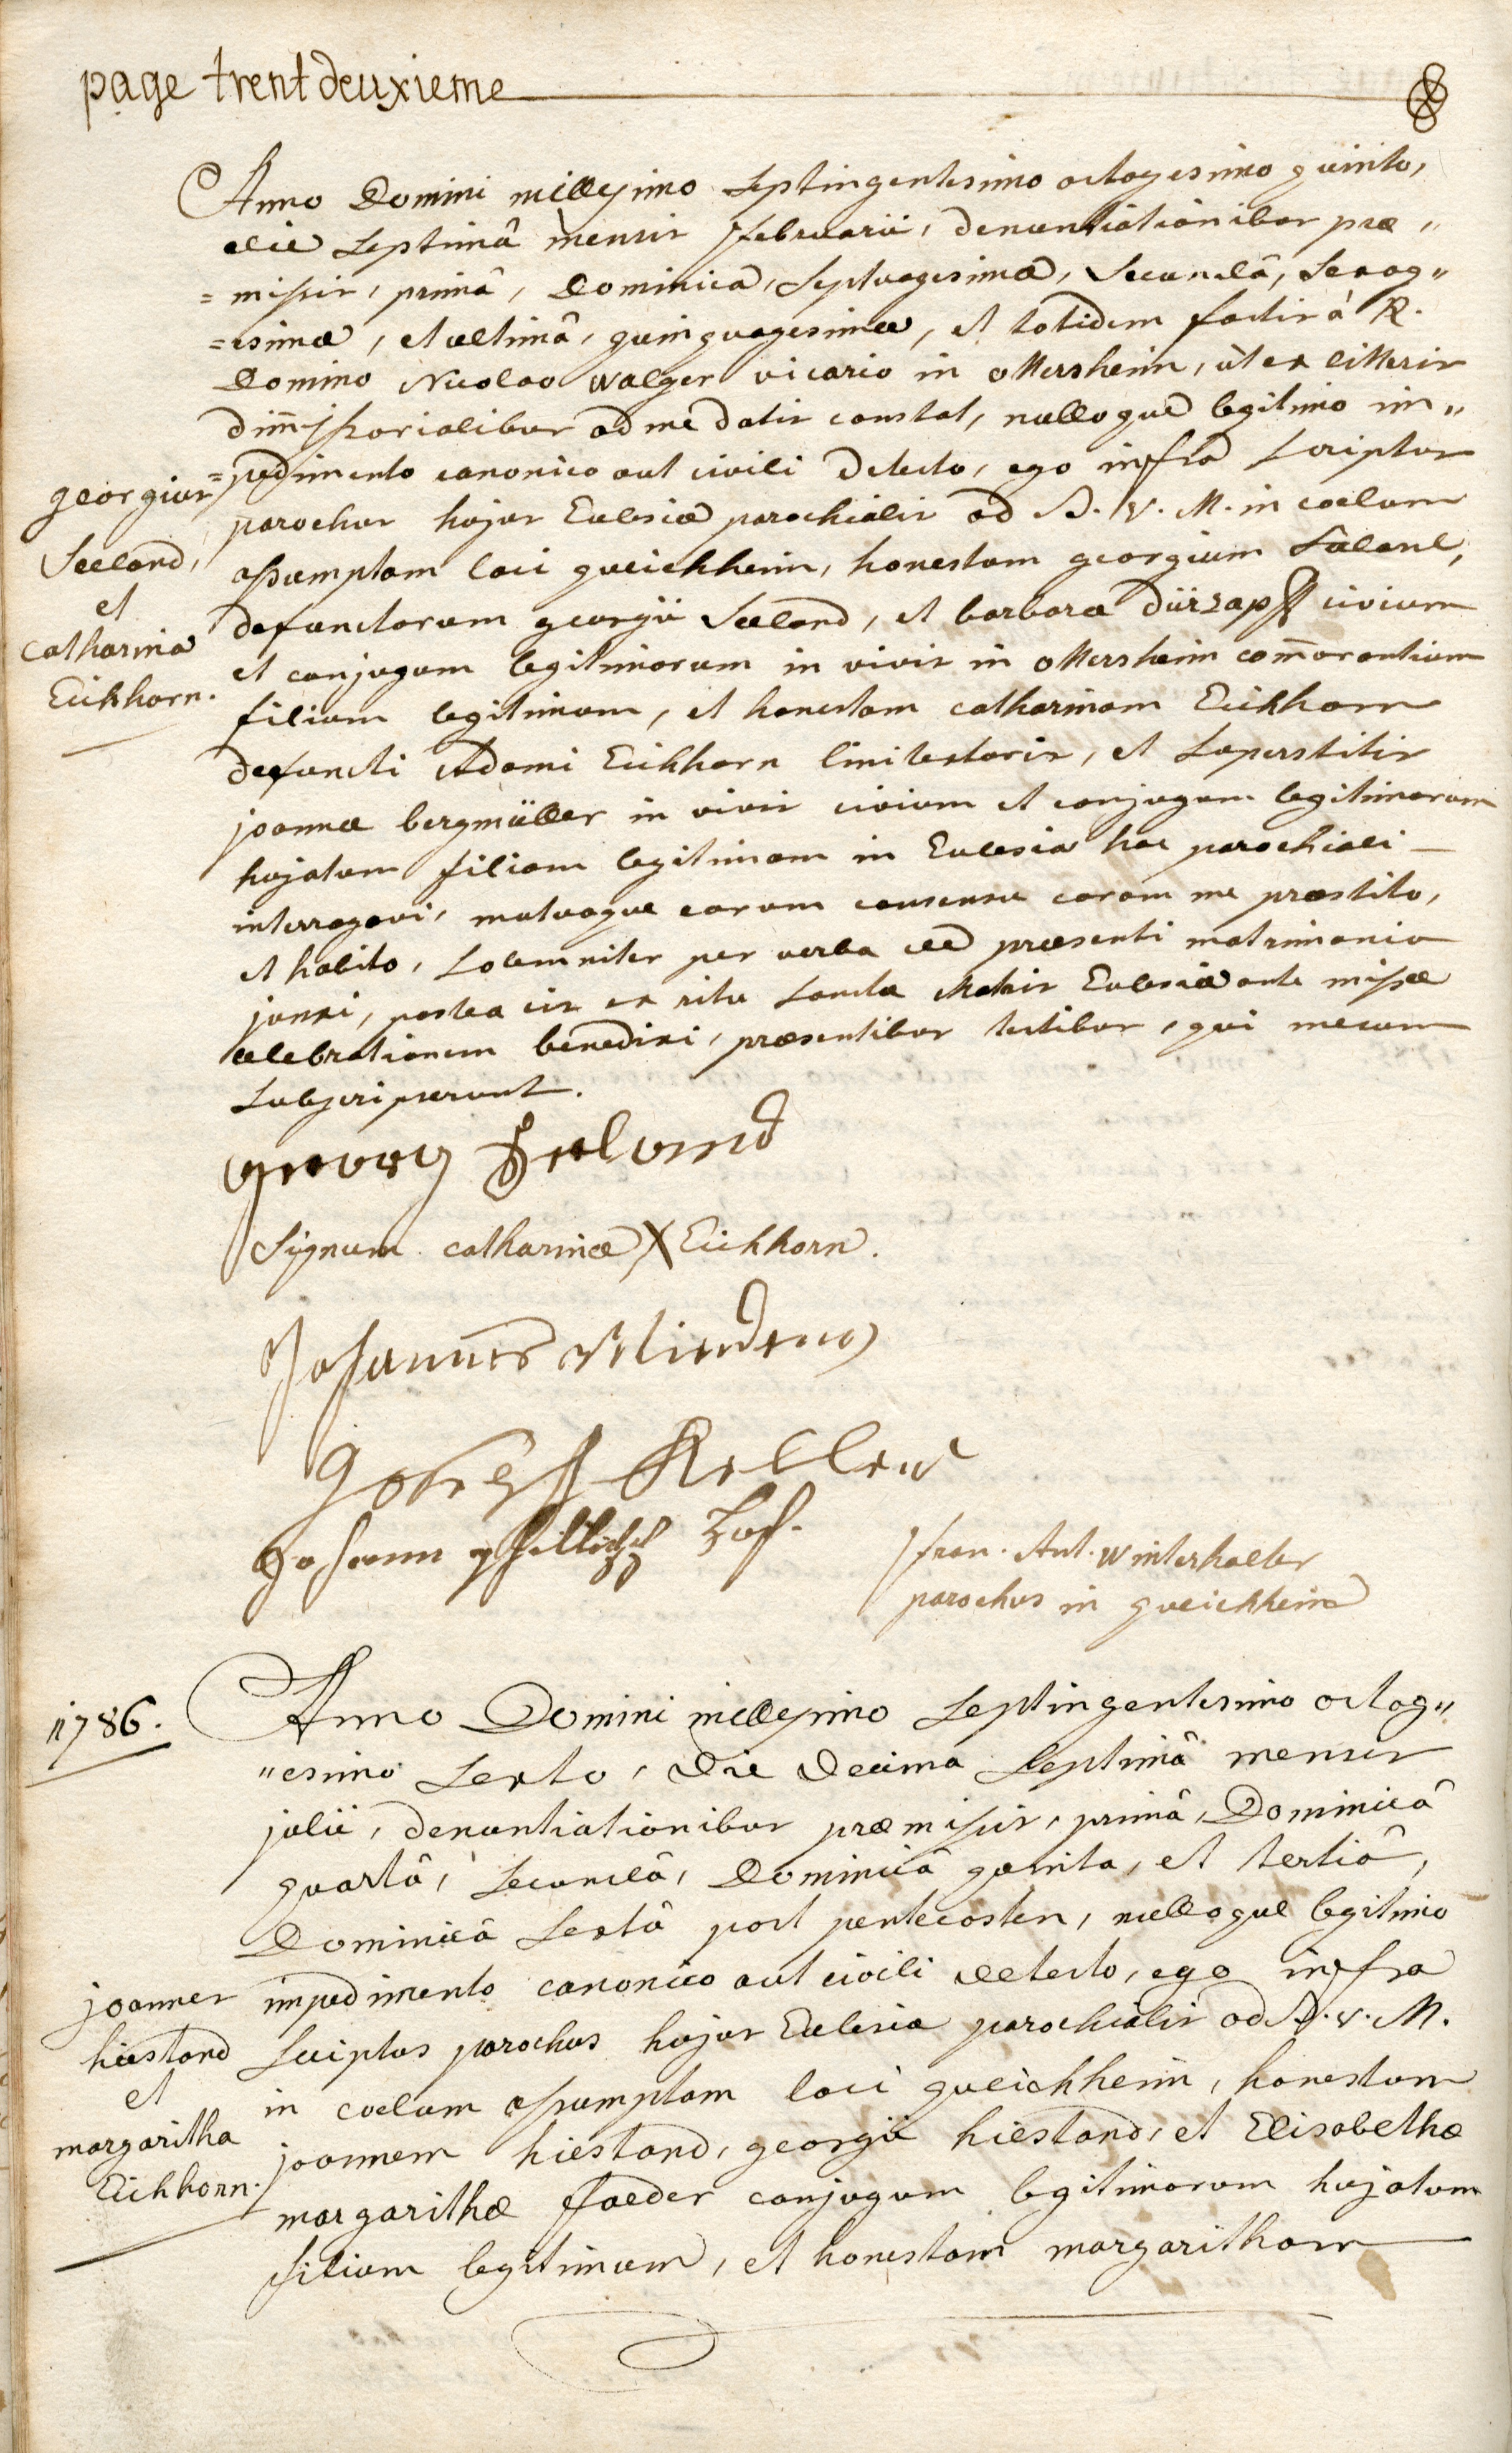 page trentdeuxieme
Anno Domini millesimo Septingentesimo octogesimo quinto,
die Septimâ mensis februarii, denuntiationibus præ„
=missis, primâ, Dominica, Septuagesimæ, Secundâ, Sexag„
=esimæ, et ultimâ, quinquagesimæ, et totidem factis à R.
Domino Nicolao Walger vicario in ottersheim, ùt ex litteris
dim̄issorialibus ad me datis constat, nulloque legitimo im„
=pedimento canonico aut civili detecto, ego infra Scriptus
parochus hujus Eclesiæ parochialis ad B. V. M. in coelum
assumptam loci queichheim, honestum georgium Seeland,
defunctorum georgii Seeland, et barbaræ dürzapff civium
et conjugum legitimorum in vivis in ottersheim com̄orantium
filium legitimum, et honestam catharinam Eichhorn
defuncti Adami Eichhorn linitextoris, et Superstitis
joannæ bergmüller in vivis civium et conjugum legitimorum
hujatum filiam legitimam in Eclesia hac parochiali
interrogavi, mutuoque eorum consensu coram me præstito,
et habito, Solemniter per verba de præsenti matrimonio
junxi, postea eis ex ritu Sanctæ Matris Eclesiæ ante missæ
celebrationem benedixi, præsentibus testibus, qui mecum
Subscripserunt.
georgius
Seeland,
et
catharina
Eichhorn.
georg Seelund
Signum catharinæ X Eichhorn.
Johannes
Joseph Keller
Johann
fran. Ant. Winterhalter
parochus in queichheim
1786.
Anno Domini millesimo Septingentesimo octog„
„esimo Sexto, Die Decima Septimâ mensis
julii, denuntiationibus præmissis, primâ, Dominicâ
quartâ, Secundâ, Dominicâ quinta, et tertiâ,
Dominicâ Sextâ post pentecosten, nulloque legitimo
impedimento canonico aut civili detecto, ego infra
Scriptus parochus hujus Eclesiæ parochialis ad B. V. M.
in coelum assumptam loci queichheim, honestum
joannem hiestand, georgii hiestand, et Elisabethæ
margarithæ foeder conjugum legitimorum hujatum
filium legitimum, et honestam margaritham
joannes
hiestand
et
margaritha
Eichhorn.